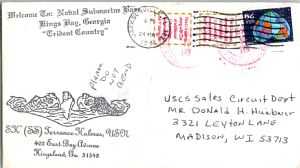 Welcome To: Naval Submarine Base
Kings Bay, Georgia
"Trident Country"
PM
24 MAR
Please
DO
NOT
BEND
SK (SS) Terrance Holmes, USN
402 East Bay Avenue
Kingsland, Ga 31548
USCS Sales Circuit Dept
Mr. Donald H. Huebner
3321 LEYTON LANE
MADISON, WI 53713